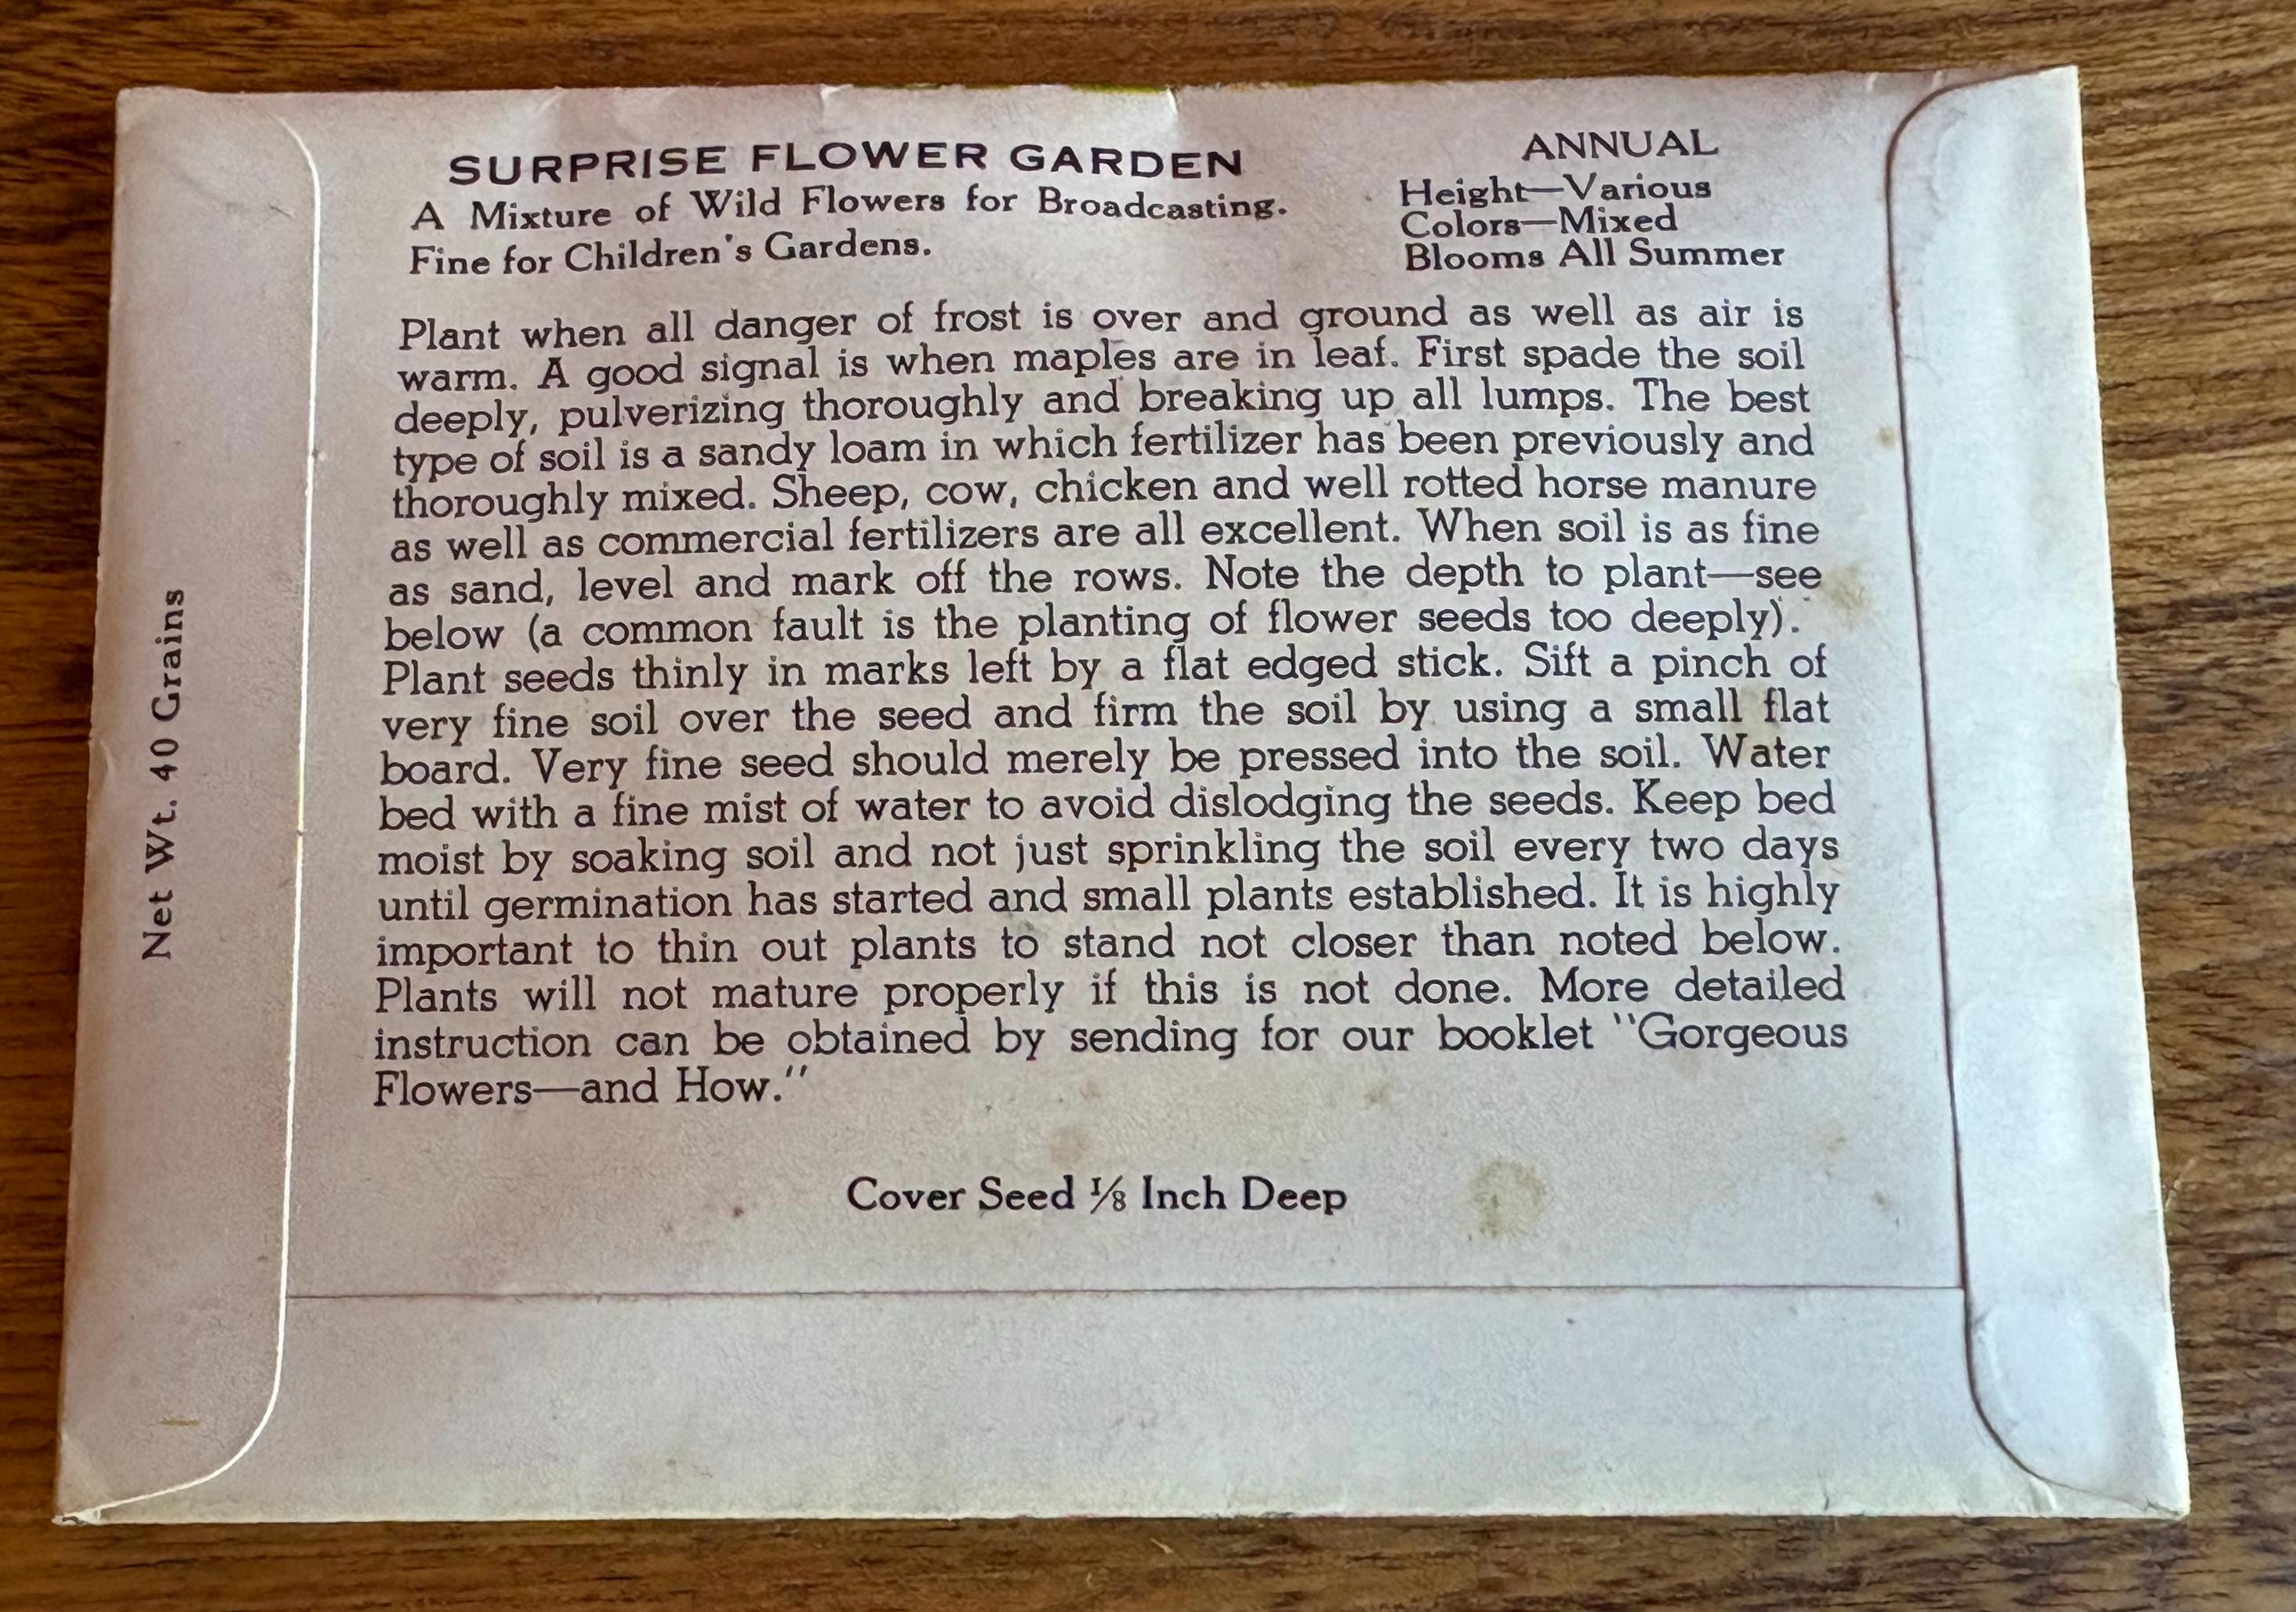 SURPRISE FLOWER GARDEN
A Mixture of Wild Flowers for Broadcasting.
Fine for Children's Gardens.
ANNUAL
Height—Various
Colors—Mixed
Blooms All Summer
Plant when all danger of frost is over and ground as well as air is
warm. A good signal is when maples are in leaf. First spade the soil
deeply, pulverizing thoroughly and breaking up all lumps. The best
type of soil is a sandy loam in which fertilizer has been previously and
thoroughly mixed. Sheep, cow, chicken and well rotted horse manure
as well as commercial fertilizers are all excellent. When soil is as fine
as sand, level and mark off the rows. Note the depth to plant—see
below (a common fault is the planting of flower seeds too deeply).
Plant seeds thinly in marks left by a flat edged stick. Sift a pinch of
very fine soil over the seed and firm the soil by using a small flat
board. Very fine seed should merely be pressed into the soil. Water
bed with a fine mist of water to avoid dislodging the seeds. Keep bed
moist by soaking soil and not just sprinkling the soil every two days
until germination has started and small plants established. It is highly
important to thin out plants to stand not closer than noted below.
Plants will not mature properly if this is not done. More detailed
instruction can be obtained by sending for our booklet "Gorgeous
Flowers—and How."
Cover Seed ⅛ Inch Deep
Net Wt. 40 Grains